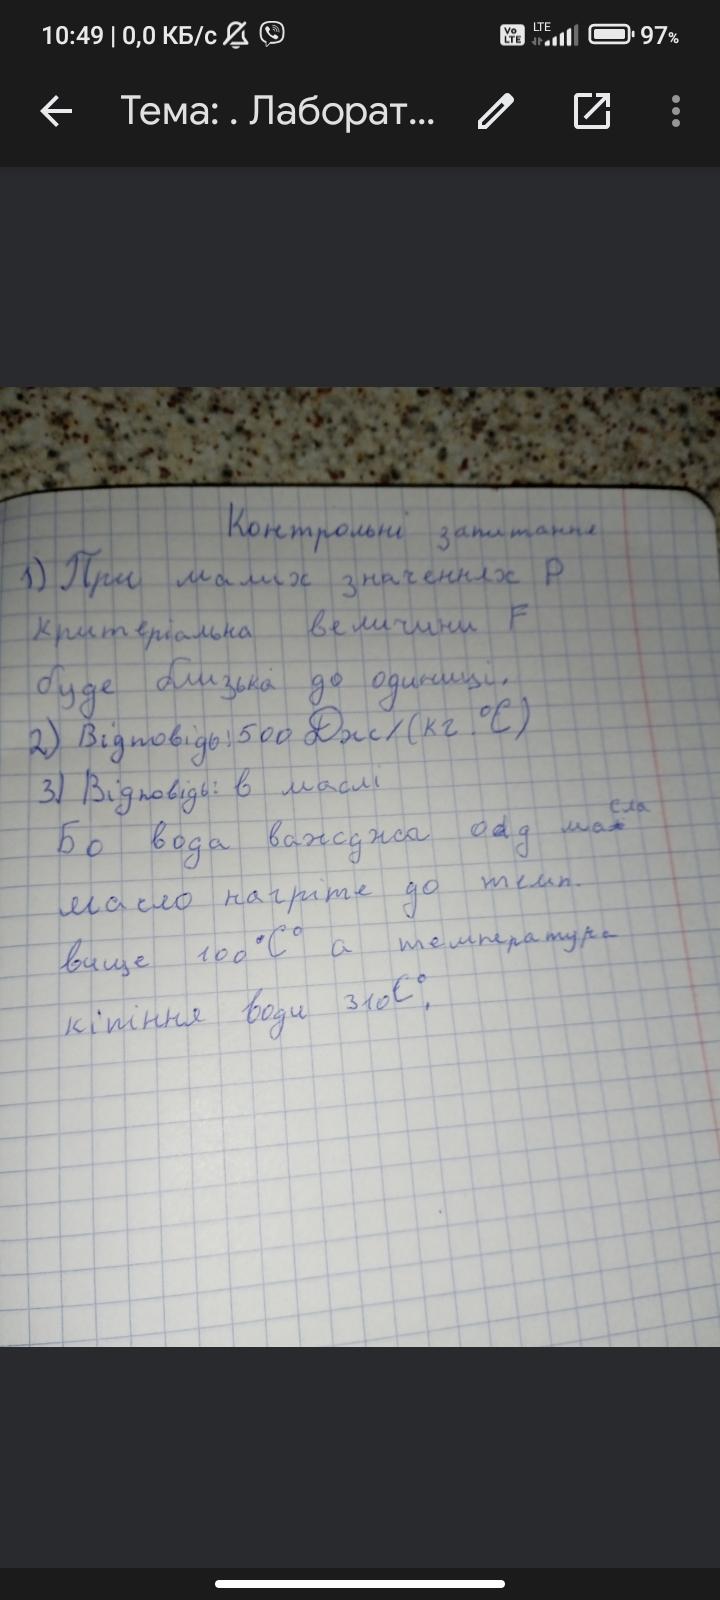 10:49 | 0,0 КБ/с
Vo LTE LTE 97%
Тема: . Лаборат...
Контрольні запитання
1) При малих значеннях P
критеріальна величини F
буде близька до одиниці.
2) Відповідь: 500 Дж/(кг.°C)
3) Відповідь: в маслі
Бо вода важджа од масла
масло нагріте до темп.
вище 100°C° а температура
кіпіння води 310C°.